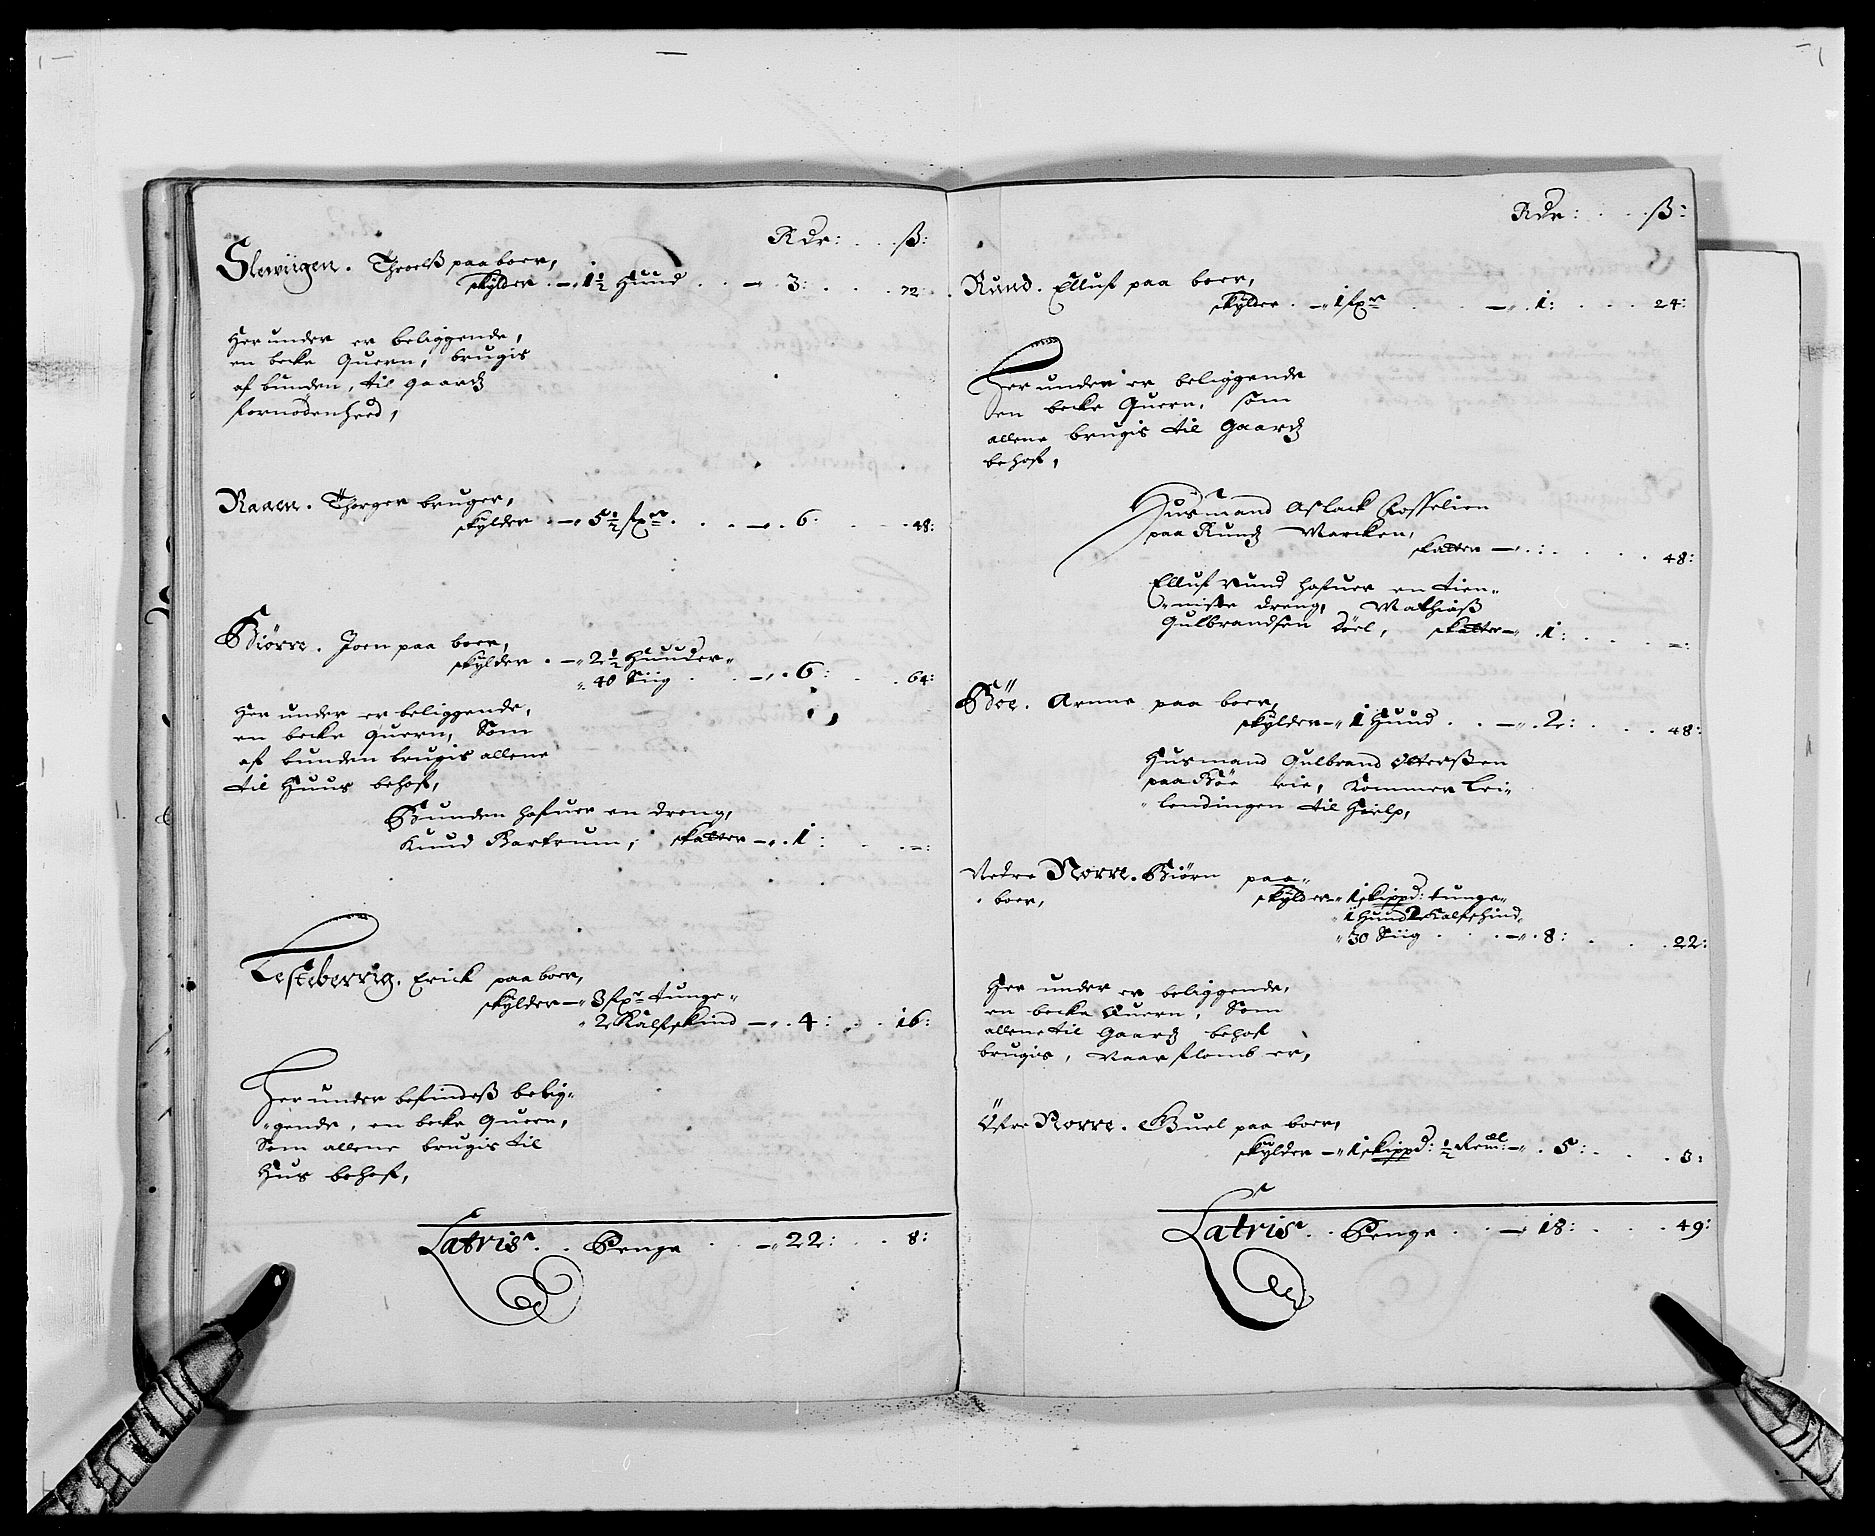 Rdr: . . . ß:
Slewiigen. Throelß paa boer,
skylder . — 1½ Huud . . — 3: . . . 72:
Her under er beliggende,
en becke Quern, brugis
af bunden, til gaardz
fornødenheed,
Raaen. Thorger bruger,
skylder . — 5½ fxr . . . — 6: . . . 48:
Biørre. Joen paa boer,
skylder . — 2½ Huuder
40 Siig . . — 6: . . 64:
Her under er beliggende,
en becke Quern, Som
af bunden brugis allene
til Huus behof,
Bunden hafuer en dreng,
Knud Bertrum, skatter — . 1: . . =:
Testeberrig. Erick paa boer,
skylder — 3 fxr tunge
2 Kalfskind — . 4: . . 16:
Her under befindeß belig-
gende, en becke Quern,
Som allene brugis til
Hus behof,
Latris. . . Penge . . — 22: . . 8:
Rdr: . . . ß:
Rund. Elluf paa boer,
skylder . — 1 fxr . . — . 1: . . . 24:
Her under er beliggende
en becke Quern, som
allene brugis til Gaardz
behof,
Husmand Aslack Rosselien
paa Rundz Marcken,
skatter — . : . . . 48:
Elluf Rund hafuer en tien-
niste dreng, Mathiaß
Gulbrandsen Røel, skatter — . 1: . . . =:
Bøe. Arnne paa boer,
skylder — 1 Huud . . — . 2: . . . 48:
Husmand Gulbrand Otterßen
paa Bøe eie, kommer lei-
lendingen til hielp,
Nedre Norre. Biørn paa
boer, skylder — 1 skippd: tunge
1 Huud 2 Kalfskind
30 Siig . . . — . 8: . . . 22:
Her under er beliggende,
en becke Quern, Som
allene til Gaardz behof
brugis, Naar flomb er,
Øfre Norre. Buel paa boer,
skylder — 1 skippd: ½ Reml: — . 5: . . . 3:
Latris. . . Penge . . — 18: . . . 49: